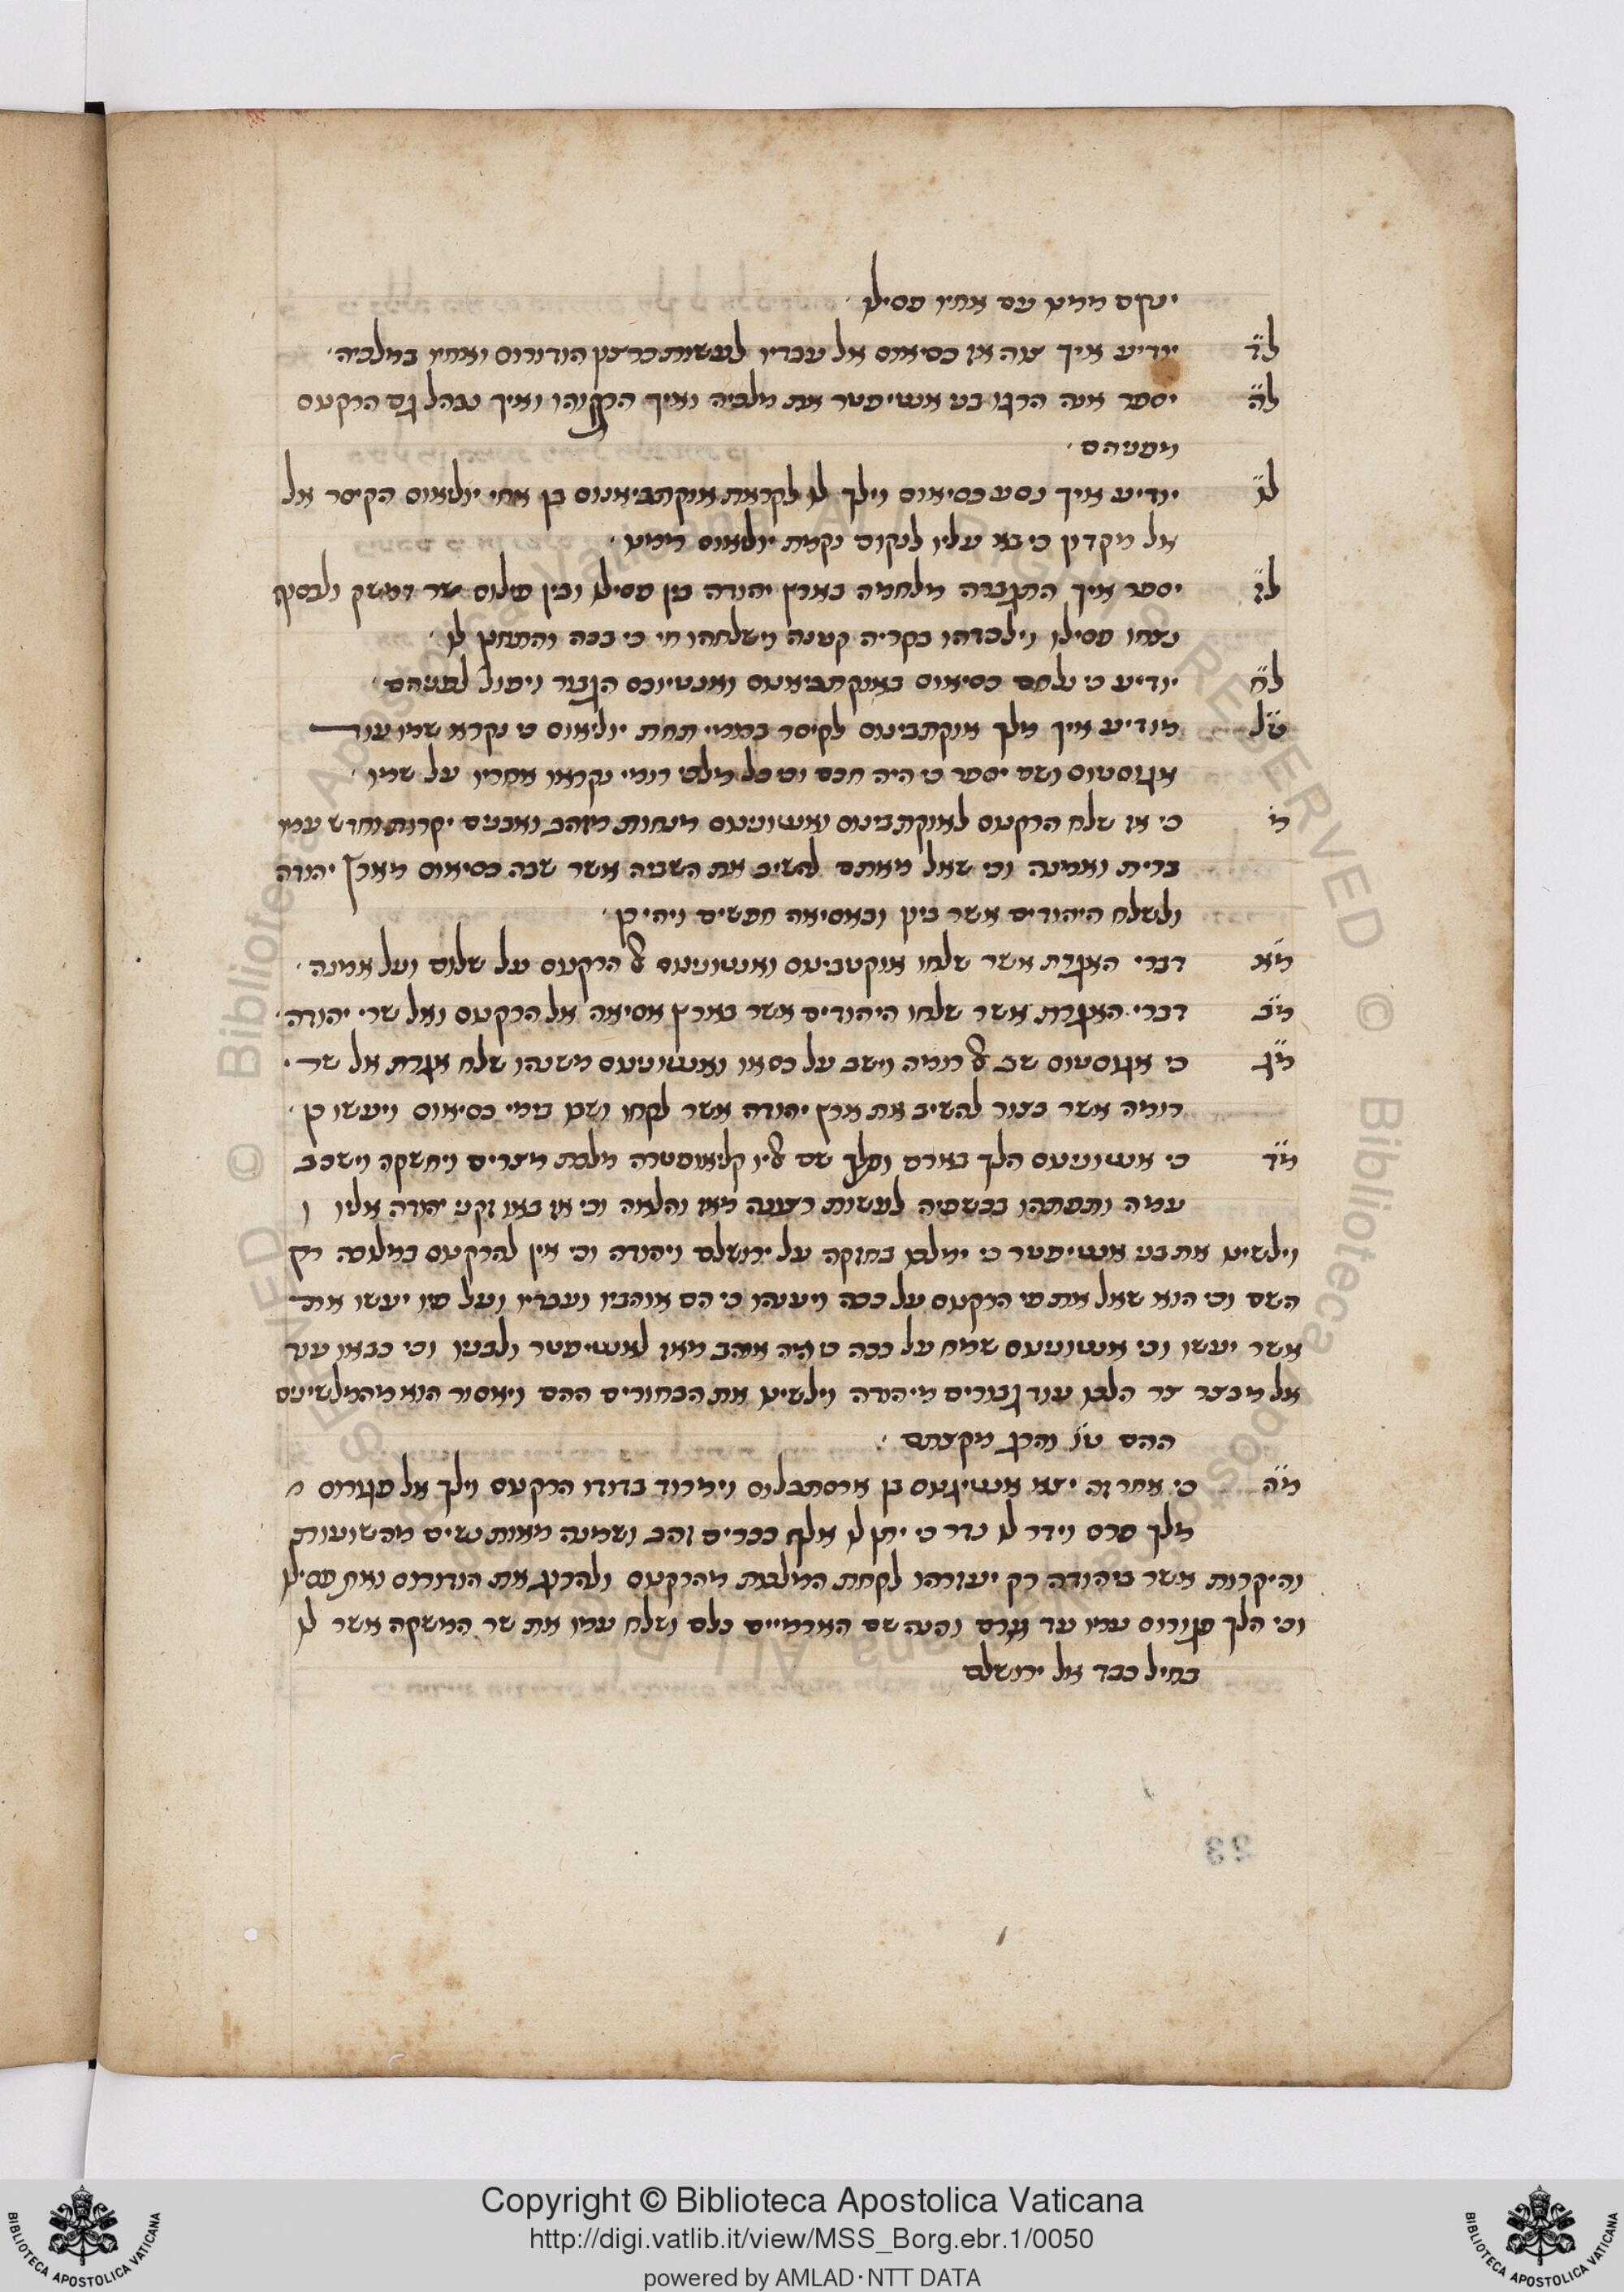 ינקום ממנו עם אחיו פסילו
ל״ד יודיע איך צוה אז כסיאוס אל עבדיו לעשות כרצון הורודוס ואחיו במלכיה
ל״ה יספר אנה הרגו בני אנטיפטר את מלכיה ואיך הרגוהו ואיך נבהל גם הרקנוס
מפניהם
ל״ו יודיע איך נסע כסיאוס וילך לו לקראת אוקתביאנוס בן אחי יוליאוס הקיסר אל
אל מקדון כי בא עליו לנקום נקמת יוליאוס ממנו
ל״ז יספר איך התגברה מלחמה בארץ יהודה בין פסילו ובין פילוס שר דמשק ולבסוף
נצחו פסילו וילכדהו בקריה קטנה וישלחהו חי כי בכה והתחנן לו
ל״ח יודיע כי נלחם כסיאוס באוקתביאנוס ואנטיוכס הגבור ויפול לפניהם
ט״ל מודיע איך מלך אוקתבינוס לקיסר ברומי תחת יוליאוס כי נקרא שמו עוד
אגוסטוס ושם יספר כי היה חכם וכי כל מלכי רומי נקראו אחריו על שמו
מ׳ כי אז שלח הרקנוס לאוקתבינוס ואנטוניוס מנחות מזהב ואבנים יקרות וחדש עמו
ברית ואמנה וכי שאל מאתם להשיב את השביה אשר שבה כסיאוס מארץ יהודה
ולשלח היהודים אשר ביון ובאסיאה חפשים ויהי כן
מ״א דברי האגרת אשר שלחו אוקטבינוס ואנטוניוס אל הרקנוס על שלום ועל אמנה
מ״ב דברי האגרת אשר שלחו היהודים אשר בארץ אסיאה אל הרקנוס ואל שרי יהודה
מ״ג כי אגוסטוס שב אל רומה וישב על כסאו ואנטוניוס משנהו שלח אגרת אל שר
רומה אשר בצור להשיב את ארץ יהודה אשר לקחו ושבו בימי כסיאוס ויעשו כן
מ״ד כי אנטוניוס הלך בארם ותלך שם אליו קליאופטרה מלכת מצרים ויחשקה וישכב
עמה ותפתהו בכשפיה לעשות רצונה מאז והלאה וכי אז באו זקני יהודה אליו
וילשינו את בני אנטיפטר כי ימלכו בחזקה על ירושלם ויהודה וכי אין להרקנוס במלוכה רק
השם וכי הוא שאל את פי הרקנוס על ככה ויענהו כי הם אוהביו ועבדיו ועל פיו יעשו את
אשר יעשו וכי אנטוניוס שמח על ככה כי היה אוהב מאז לאנטיפטר ולבניו וכי כבאו
אל מבצר צר הלכו עוד גבורים מיהודה וילשינו את הבחורים ההם ויאסור הוא מהמלשינים
ההם והרג מקצתם
מ״ה כי אחר זה יצא אנטיגנוס בן ארסתבלוס וימרוד בדודו הרקנוס וילך אל פגורוס
מלך פרס וידר לו נדר כי יתן לו אלף ככרים זהב ושמנה מאות נשים
והיקרות אשר ביהודה רק יעזרהו לקחת המלכות מהרקנוס ולהרוג את הורודוס ואת פסילו
וכי הלך פגורוס עמו עד ארם והנה שם הארמיים כלם ושלח עמו את שר המשקה אשר לו
בחיל כבד אל ירושלם
Copyright © Biblioteca Apostolica Vaticana
http://digi.vatlib.it/view/MSS_Borg.ebr.1/0050
powered by AMLAD·NTT DATA